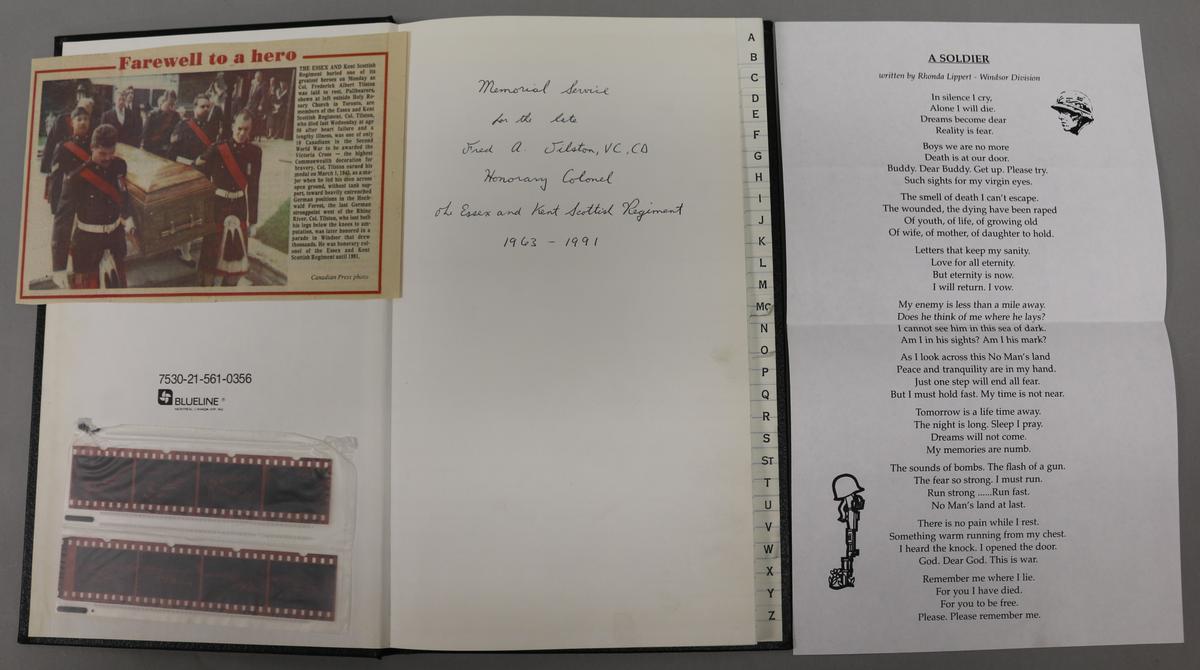 Farewell to a hero
THE ESSEX AND Kent Scottish
Regiment buried one of its
greatest heroes on Monday as
Col. Frederick Albert Tilston
was laid to rest. Pallbearers,
shown at left outside Holy Ro-
sary Church in Toronto, are
members of the Essex and Kent
Scottish Regiment. Col. Tilston,
who died last Wednesday at age
86 after heart failure and a
lengthy illness, was one of only
16 Canadians in the Second
World War to be awarded the
Victoria Cross — the highest
Commonwealth decoration for
bravery. Col. Tilston earned his
medal on March 1, 1945, as a ma-
jor when he led his men across
open ground, without tank sup-
port, toward heavily entrenched
German positions in the Hoch-
wald Forest, the last German
strongpoint west of the Rhine
River. Col. Tilston, who lost both
his legs below the knees to am-
putation, was later honored in a
parade in Windsor that drew
thousands. He was honorary col-
onel of the Essex and Kent
Scottish Regiment until 1991.
Canadian Press photo
7530-21-561-0356
BLUELINE ®
Memorial Service
for the late
Fred A. Tilston, VC, CD
Honorary Colonel
of Essex and Kent Scottish Regiment
1963 - 1991
A
B
C
D
E
F
G
H
I
J
K
L
M
MC
N
O
P
Q
R
S
ST
T
U
V
W
X
Y
Z
A SOLDIER
written by Rhonda Lippert - Windsor Division
In silence I cry,
Alone I will die.
Dreams become dear
Reality is fear.
Boys we are no more
Death is at our door.
Buddy. Dear Buddy. Get up. Please try.
Such sights for my virgin eyes.
The smell of death I can't escape.
The wounded, the dying have been raped
Of youth, of life, of growing old
Of wife, of mother, of daughter to hold.
Letters that keep my sanity.
Love for all eternity.
But eternity is now.
I will return. I vow.
My enemy is less than a mile away.
Does he think of me where he lays?
I cannot see him in this sea of dark.
Am I in his sights? Am I his mark?
As I look across this No Man's land
Peace and tranquility are in my hand.
Just one step will end all fear.
But I must hold fast. My time is not near.
Tomorrow is a life time away.
The night is long. Sleep I pray.
Dreams will not come.
My memories are numb.
The sounds of bombs. The flash of a gun.
The fear so strong. I must run.
Run strong ......Run fast.
No Man's land at last.
There is no pain while I rest.
Something warm running from my chest.
I heard the knock. I opened the door.
God. Dear God. This is war.
Remember me where I lie.
For you I have died.
For you to be free.
Please. Please remember me.